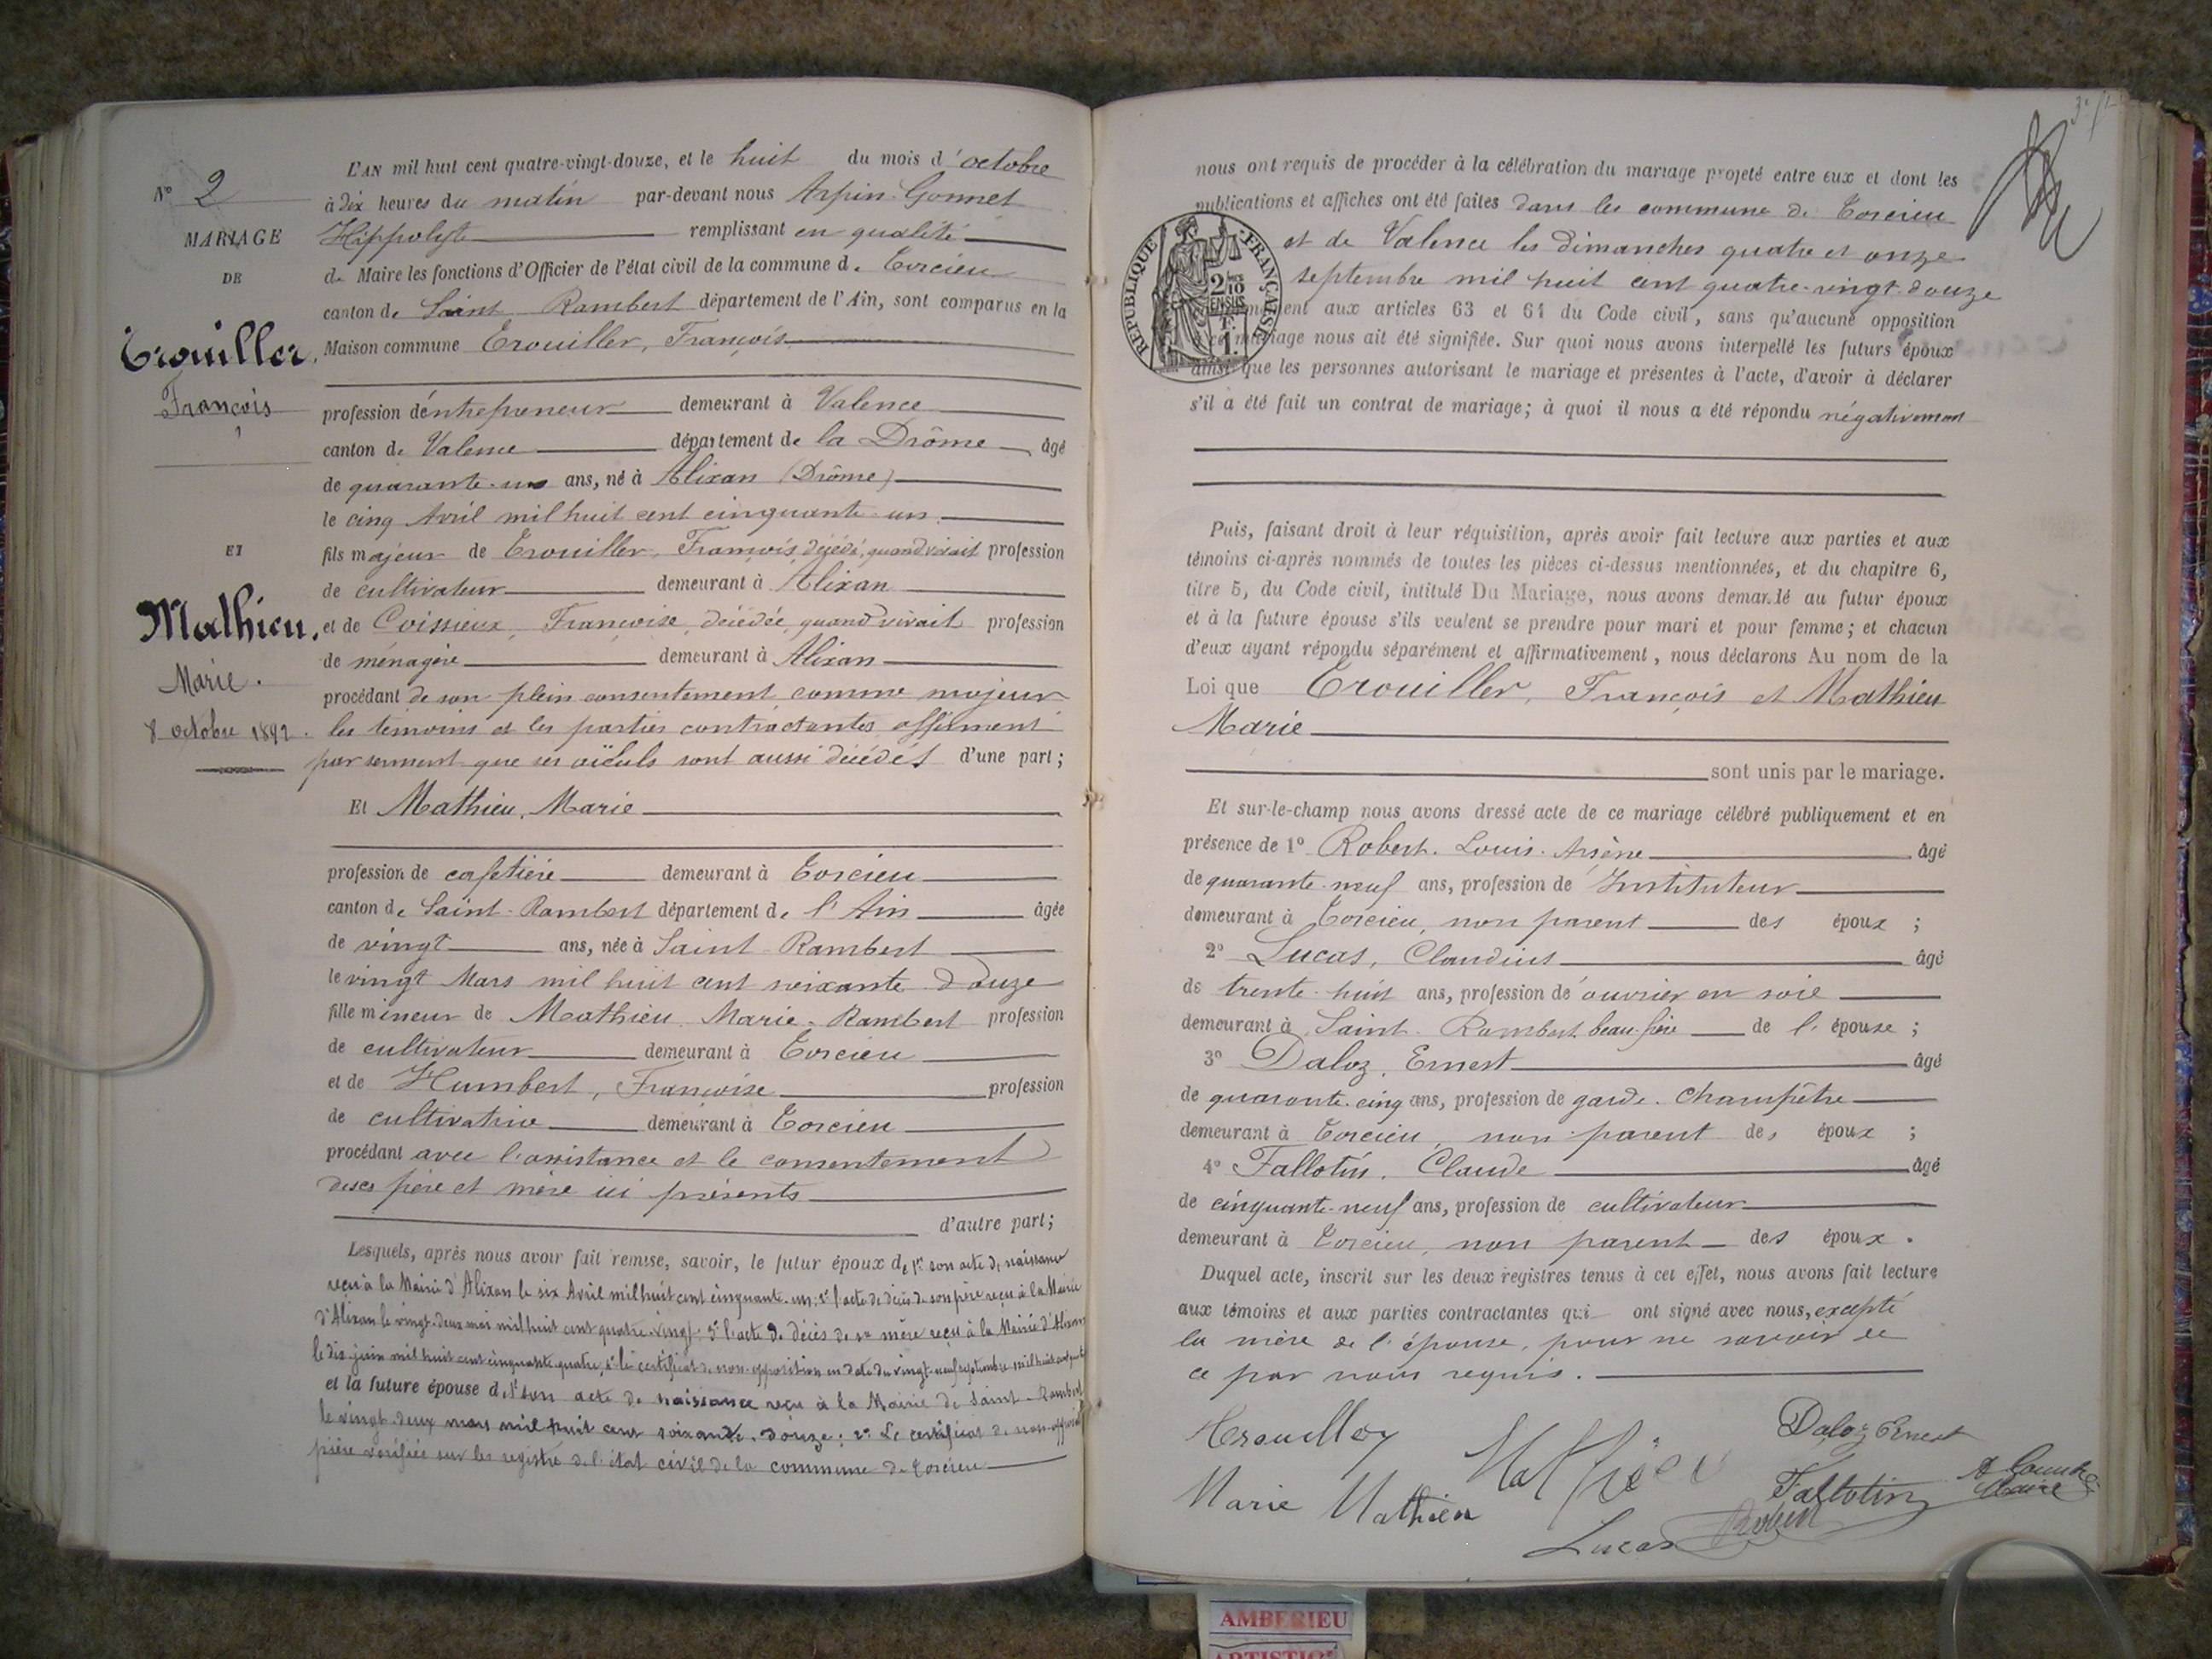 N° 2
MARIAGE
DE
Trouiller,
François
ET
Mathieu,
Marie.
8 octobre 1892.
L'AN mil huit cent quatre-vingt-douze, et le huit du mois d'octobre
à dix heures du matin par-devant nous Arpin-Gonnet
Hippolyte remplissant en qualité
de Maire les fonctions d'Officier de l'état civil de la commune de Torcieu
canton de Saint Rambert département de l'Ain, sont comparus en la
Maison commune Trouiller, François
profession d'entrepreneur demeurant à Valence
canton de Valence département de la Drôme, âgé
de quarante-un ans, né à Alixan (Drôme)
le cinq Avril mil huit cent cinquante-un
fils majeur de Trouiller, François, décédé, quand vivait profession
de cultivateur demeurant à Alixan
et de Coissieux, Françoise, décédée, quand vivait profession
de ménagère demeurant à Alixan
procédant de son plein consentement, comme majeur
les témoins et les parties contractantes affirment
par serment que ses aïeuls sont aussi décédés d'une part;
Et Mathieu, Marie
profession de cafetière demeurant à Torcieu
canton de Saint-Rambert département de l'Ain âgée
de vingt ans, née à Saint-Rambert
le vingt Mars mil huit cent soixante-douze
fille mineur de Mathieu, Marie-Rambert profession
de cultivateur demeurant à Torcieu
et de Humbert, Françoise profession
de cultivatrice demeurant à Torcieu
procédant avec l'assistance et le consentement
de ses père et mère ici présents
d'autre part;
Lesquels, après nous avoir fait remise, savoir, le futur époux de 1° son acte de naissance
reçu à la Mairie d'Alixan le six Avril mil huit cent cinquante-un; 2° l'acte de décès de son père reçu à la Mairie
d'Alixan le vingt-deux mai mil huit cent quatre-vingt; 3° l'acte de décès de sa mère reçu à la Mairie d'Alixan
le dix juin mil huit cent cinquante quatre, 4° le certificat de non-opposition en date du vingt-neuf septembre mil huit cent
et la future épouse de 1° son acte de naissance reçu à la Mairie de Saint-Rambert
le vingt-deux mars mil huit cent soixante-douze; 2° Le certificat de non-opposit
pièce vérifiée sur les registre de l'état civil de la commune de Torcieu
nous ont requis de procéder à la célébration du mariage projeté entre eux et dont les
publications et affiches ont été faites dans les commune de Torcieu
et de Valence les dimanches quatre et onze
septembre mil huit cent quatre-vingt-douze
RÉPUBLIQUE FRANÇAISE
2/10 EN SUS
aux articles 63 et 64 du Code civil, sans qu'aucune opposition
à ce mariage nous ait été signifiée. Sur quoi nous avons interpellé les futurs époux
ainsi que les personnes autorisant le mariage et présentes à l'acte, d'avoir à déclarer
s'il a été fait un contrat de mariage; à quoi il nous a été répondu négativement
Puis, faisant droit à leur réquisition, après avoir fait lecture aux parties et aux
témoins ci-après nommés de toutes les pièces ci-dessus mentionnées, et du chapitre 6,
titre 5, du Code civil, intitulé Du Mariage, nous avons demandé au futur époux
et à la future épouse s'ils veulent se prendre pour mari et pour femme; et chacun
d'eux ayant répondu séparément et affirmativement, nous déclarons Au nom de la
Loi que Trouiller, François et Mathieu
Marie
sont unis par le mariage.
Et sur-le-champ nous avons dressé acte de ce mariage célébré publiquement et en
présence de 1° Robert. Louis. Arsène âgé
de quarante-neuf ans, profession de Instituteur
demeurant à Torcieu, non parent des époux;
2° Lucas, Claudius âgé
de trente-huit ans, profession de ouvrier en soie
demeurant à Saint-Rambert beau-frère de l'épouse;
3° Daloz, Ernest âgé
de quarante-cinq ans, profession de garde-champêtre
demeurant à Torcieu, non parent des époux;
4° Fallotin, Claude âgé
de cinquante-neuf ans, profession de cultivateur
demeurant à Torcieu, non parent des époux.
Duquel acte, inscrit sur les deux registres tenus à cet effet, nous avons fait lecture
aux témoins et aux parties contractantes qui ont signé avec nous, excepté
la mère de l'épouse, pour ne savoir de
ce par nous requis.
Trouiller Mathieu Daloz Ernest
Marie Mathieu Fallotin
Lucas Robert
AMBERIEU